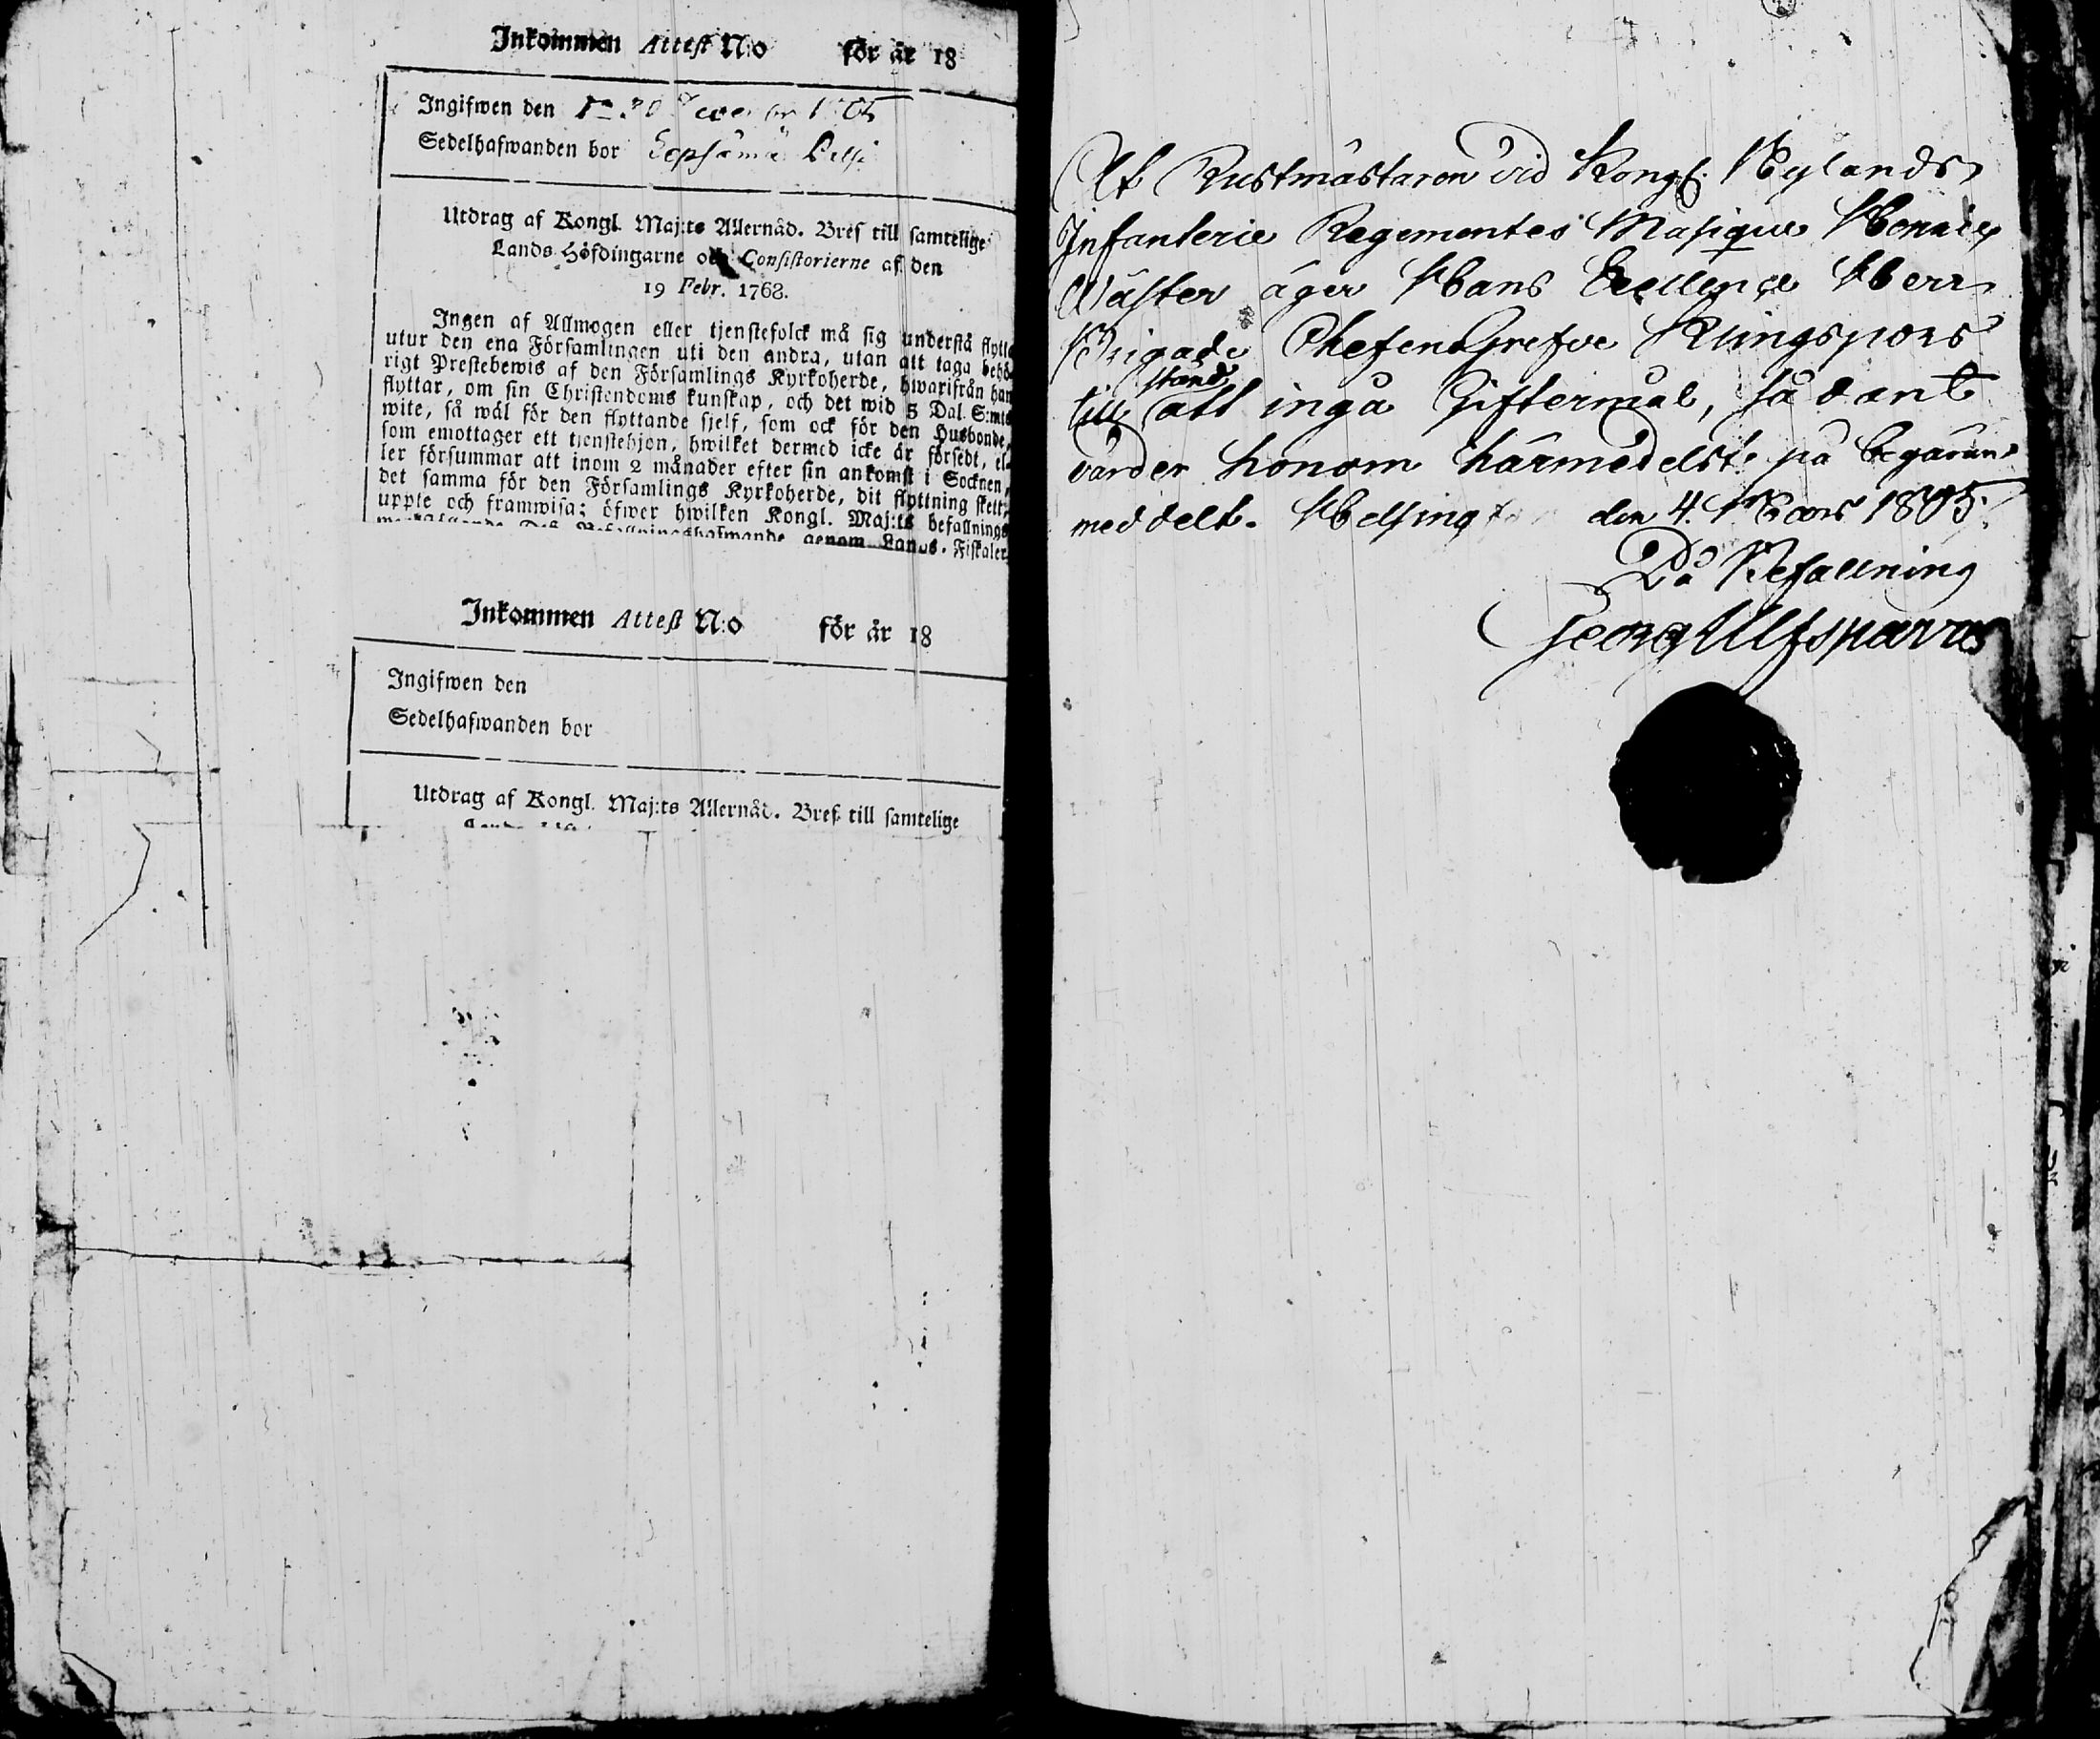 Inkommen Attest N:o för år 18
Ingifwen den
Sedelhafwanden bor
Utdrag af Kongl. Maj:ts Allernåd. Bref till samtelige
Lands Höfdingarne och Consistorierne af den
19 Febr. 1768.
Ingen af Allmogen eller tjenstefolck må sig understå flytta
utur den ena Församlingen uti den andra, utan att taga behö-
rigt Prestebewis af den Församlings Kyrkoherde, hwarifrån han
flyttar, om sin Christendoms kunskap, och det wid 5 Dal. S:mts
wite, så wäl för den flyttande sjelf, som ock för den Husbonde,
som emottager ett tjenstehjon, hwilket dermed icke är försedt, el-
ler försummar att inom 2 månader efter sin ankomst i Socknen,
det samma för den Församlings Kyrkoherde, dit flyttning skett,
uppte och framwisa; öfwer hwilken Kongl. Maj:ts befallnings
genom Lands-Fiskaler
Inkommen Attest N:o för år 18
Ingifwen den
Sedelhafwanden bor
Utdrag af Kongl. Maj:ts Allernåd. Bref till samtelige
At Rustmästaren vid Kongl. Nylands
Infanterie Regementes Musique
äger Hans Excellence Herr
Brigade Chefen Grefve Klingspors
till stånd att ingå Giftermål, sådant
varder honom härmedelst på begäran
meddelt. Helsing den 4. Mars 1805.
På Befallning
Georg Ulfsparre